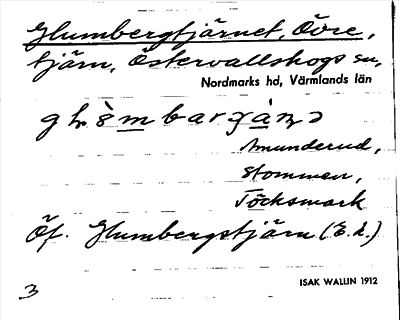 Glumbergtjärnet, Övre,
tjärn, Östervallskogs sn,
Nordmarks hd, Värmlands län
Amunderud,
Stommen,
Töcksmark
Öf. Glumbergstjärn (E.k.)
ISAK WALLIN 1912
3